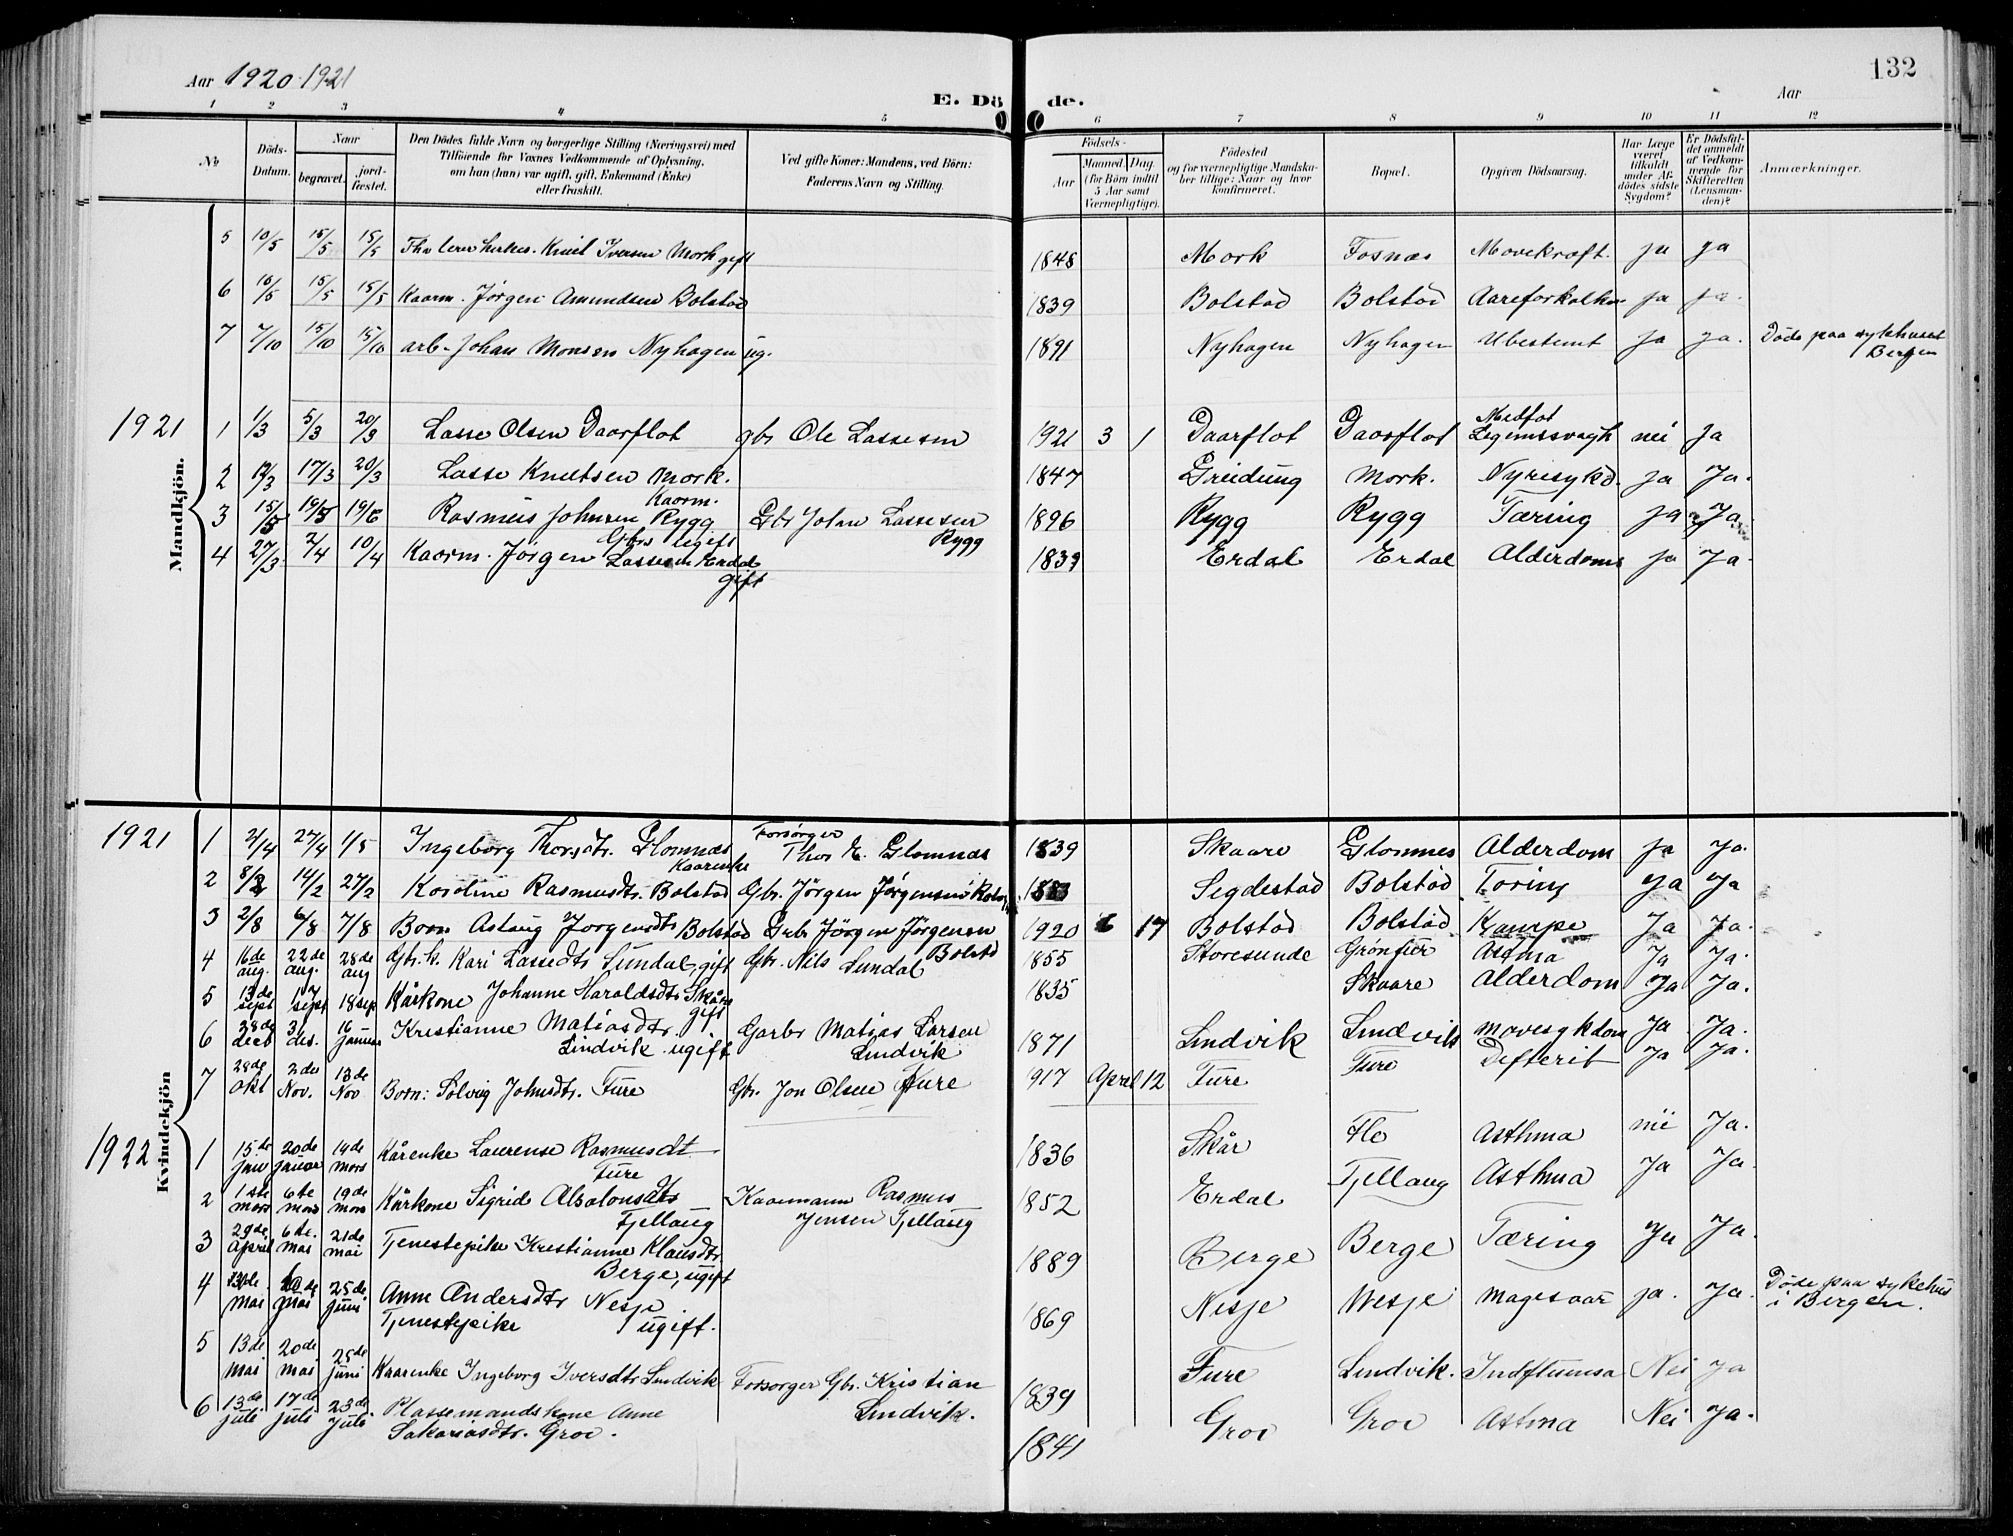 132
Aar 1920-1921
Aar
E. Döde.
1 2 3 4 5 6 7 8 9 10 11 12
No
Döds-Datum.
Naar
begravet.
jord-fæstet.
Den Dödes fulde Navn og borgerlige Stilling (Næringsvei) med
Tilföiende for Voxnes Vedkommende af Oplysning,
om han (hun) var ugift, gift, Enkemand (Enke)
eller fraskilt.
Ved gifte Koner: Mandens, ved Börn:
Faderens Navn og Stilling.
Födsels-
Aar
Maaned Dag
(for Börn indtil
5 Aar samt
Værnepligtige).
Födested
og for værnepligtige Mandska-
ber tillige: Naar og hvor
konfirmeret.
Bopæl.
Opgiven Dödsaarsag.
Har Læge
været
tilkaldt
under Af-
dödes sidste
Sygdom?
Er Dödsfal-
det anmeldt
af Vedkom-
mende for
Skifteretten
(Lensman-
den)?
Anmærkninger.
Mandkjön.
5 10/5 15/5 15/5 Knut Iversen Mork gift 1848 Mork Fosnæs Mavekræft. ja ja
6 10/5 15/5 15/5 Kaarm. Jørgen Amundsen Bolstad 1839 Bolstad Bolstad Aareforkalkn ja ja.
7 7/10 15/10 15/10 arb. Johan Monsen Nyhagen ug. 1891 Nyhagen Nyhagen Ubestemt ja ja. Døde paa sykehuset
Bergen
1921
1 1/3 5/3 20/3 Lasse Olsen Daarflot gbr Ole Lassesen 1921 3 1 Daarflot Daarflot Medføt
Legemssvagh nei Ja
2 12/3 17/3 20/3 Lasse Knutsen Mork. 1847 Greidung Mork. Nyresykd. ja Ja.
3 15/5 19/5 19/6 Rasmus Johnsen Rygg Kaarm. Gbr Johan Lassesen
Rygg 1896 Rygg Rygg Tæring ja Ja
4 27/3 2/4 10/4 Kaarm. Jörgen Lassesen Erdal
gift 1839 Erdal Erdal Alderdoms ja Ja.
Kvindekjön
1921
1 21/4 27/4 1/5 Ingeborg Thorsdtr. Glomnæs
Kaarenke Forsørger
Thor E. Glomnæs 1839 Skaare Glomnes Alderdom ja Ja.
2 8/2 14/2 27/2 Karoline Rasmusdtr. Bolstad Gbr. Jörgen Jørgensen 1883 Segdestad Bolstad Tæring ja Ja
3 2/8 6/8 7/8 Barn Aslaug Jørgensdtr Bolstad Grbr Jörgen Jörgensen
Bolstd 1920 6 17 Bolstad Bolstad Krampe Ja Ja.
4 16de aug. 22de aug. 28de aug Gbr.k. Kari Lassedtr Sundal, gift Gbr. Nils Sundal 1855 Storesunde Grönfur Astma Ja Ja.
5 13de sept 17 sept 18 sep Kårkone Johanne Haraldsdtr Skåre
gift 1835 Skaare Alderdom Ja Ja.
6 28de decb 3 des. 16 januar Kristianne Matiasdtr.
Lindvik ugift Garbr Matias Larsen
Lindvik 1871 Lindvik Lindvik Mavesykdom Ja Ja.
7 28de okt 2den Nov. 13de Nov Barn: Sölvig Johnsdtr. Fure Gbr. Jon Olsen Fure 1917 April 12 Fure Fure Difterit Ja Ja.
1922
1 15de jan 20de januar 19de mars Kårenke Laurense Rasmusdt
Fure 1836 Skår Flo Asthma nei Ja.
2 1ste mars 6te mars 19de mars Kårkone Sigrid Absalonsdtr
Fjellaug Kaarmann Rasmus
Jensen Fjellaug 1852 Erdal Fjellaug Asthma Ja Ja.
3 29de April 6te. mai 21de mai Tjenestepike Kristianne Klausdtr
Berge, ugift 1889 Berge Berge Tæring Ja Ja.
4 mai mai 25de juni Anne Andersdtr Nesje
Tjenestepike ugift. 1869 Nesje Nesje Magesaar ja. Ja. Døde paa sykehus
i Bergen.
5 13de mai 20de mai 25de juni Kaarenke Ingeborg Iversdtr Lindvik Forsørger Gbr. Kristian
Lindvik. 1839 Fure Lindvik. Indfluensa Nei Ja
6 13de juli 17de juli 23de juli Plassemandskone Anne
Sakariasdtr. Grov. 1841 Grov Grov Astma Nei Ja.